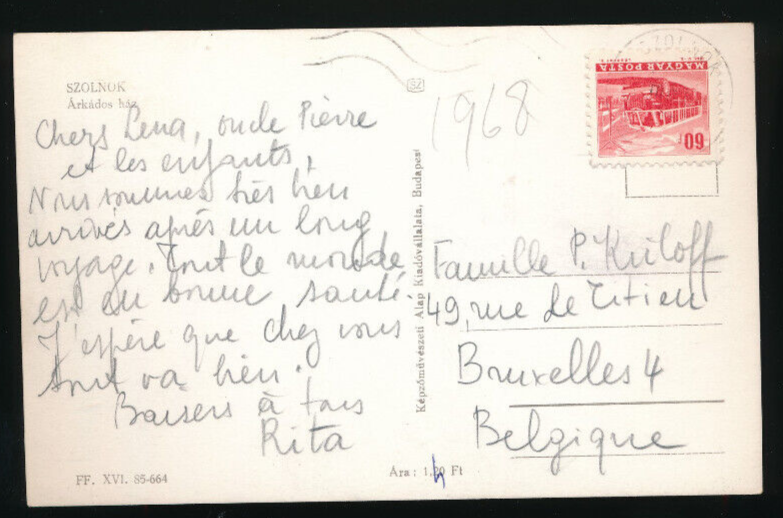 SZOLNOK
Árkádos ház
Chers Lena, oncle Pierre
et les enfants,
Nous sommes très bien
arrivés après un long
voyage. Tout le monde
est en bonne santé.
J'espère que chez vous
tout va bien.
Baisers à tous
Rita
FF. XVI. 85-664
Képzőművészeti Alap Kiadóvállalata, Budapest
Ára: 1,20 Ft
1968
MAGYAR POSTA
60f
Famille P. Kriloff
49, rue de Titien
Bruxelles 4
Belgique